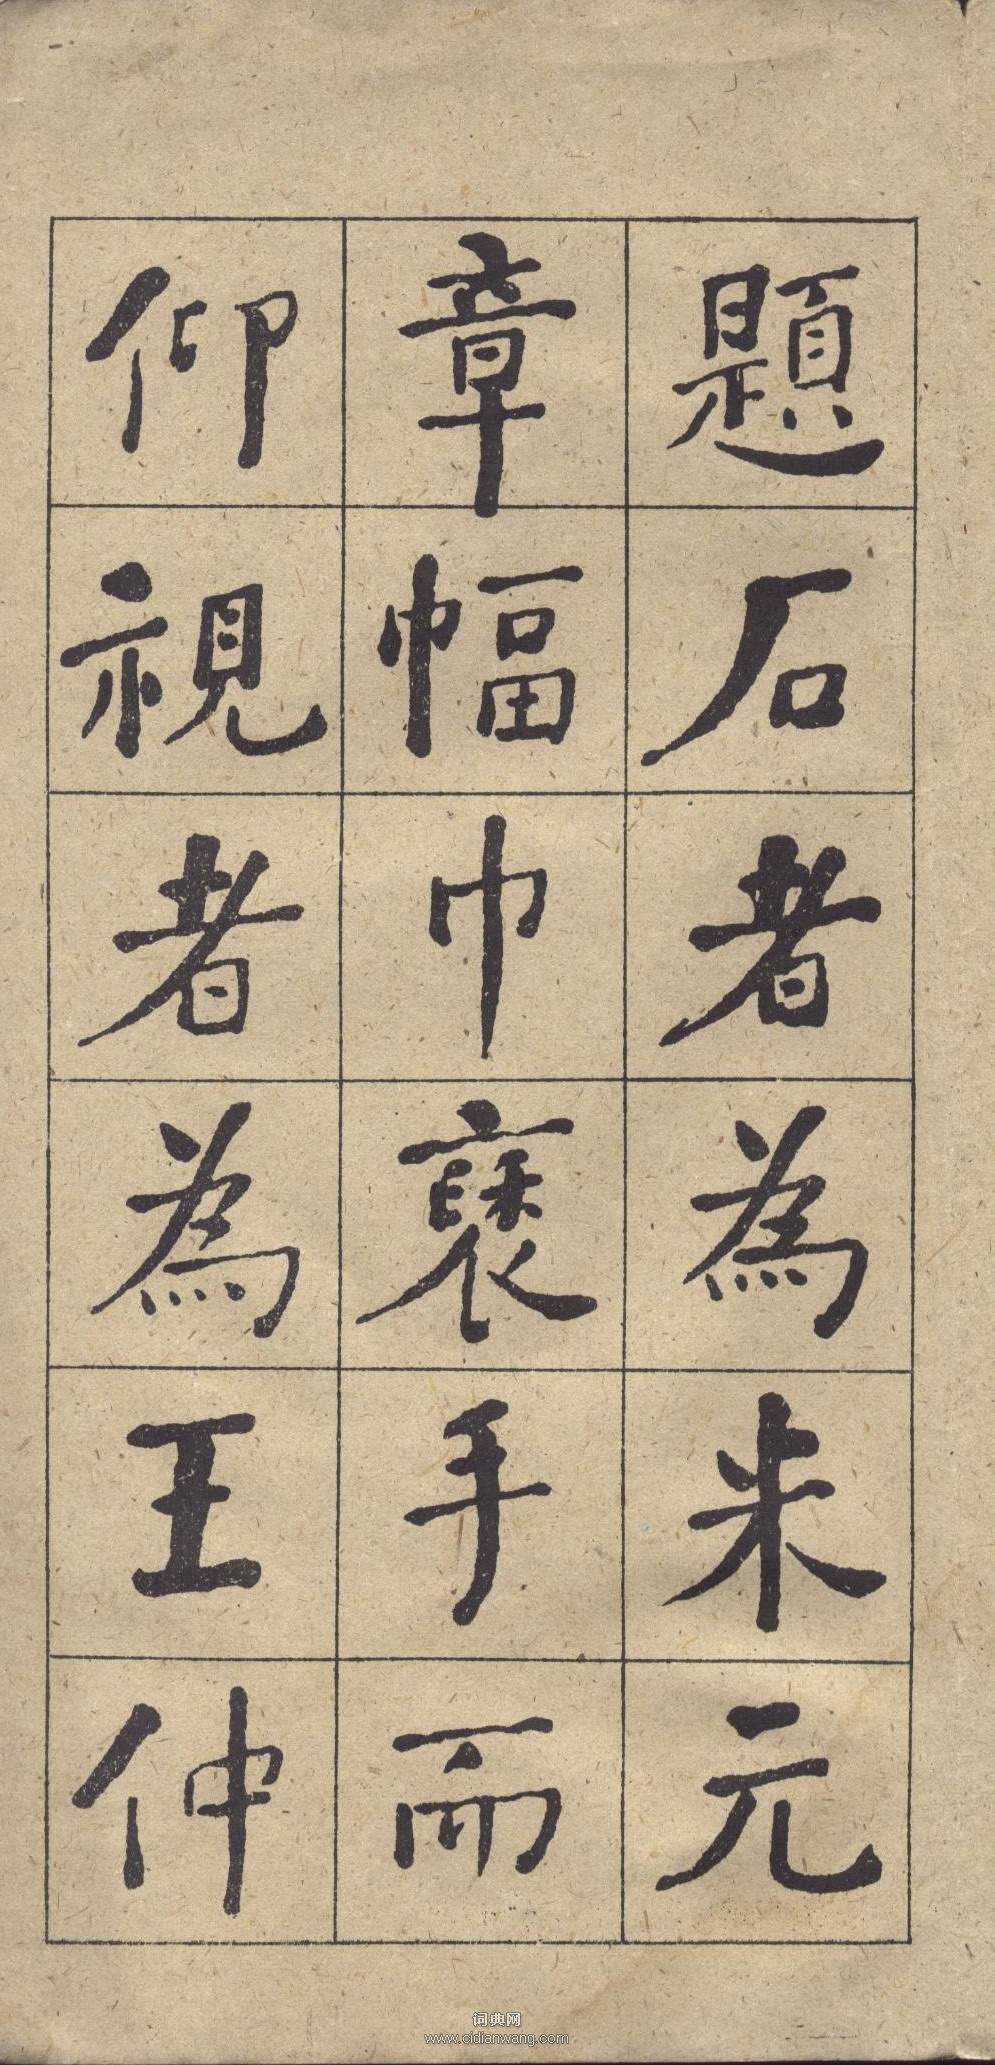 題石者為米元
章幅巾褏手而
仰視者為王仲
词典网
www.cidianwang.com